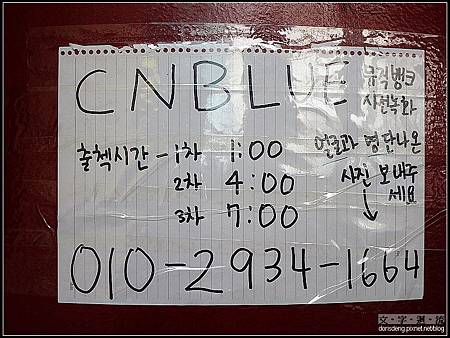 CNBLUE
뮤직뱅크
사전녹화
출첵시간 - 1차 1:00
2차 4:00
3차 7:00
얼굴과 명단나온
사진 보내주
세요
010-2934-1664
文‧字‧洄‧流
dorisdeng.pixnet.net/blog